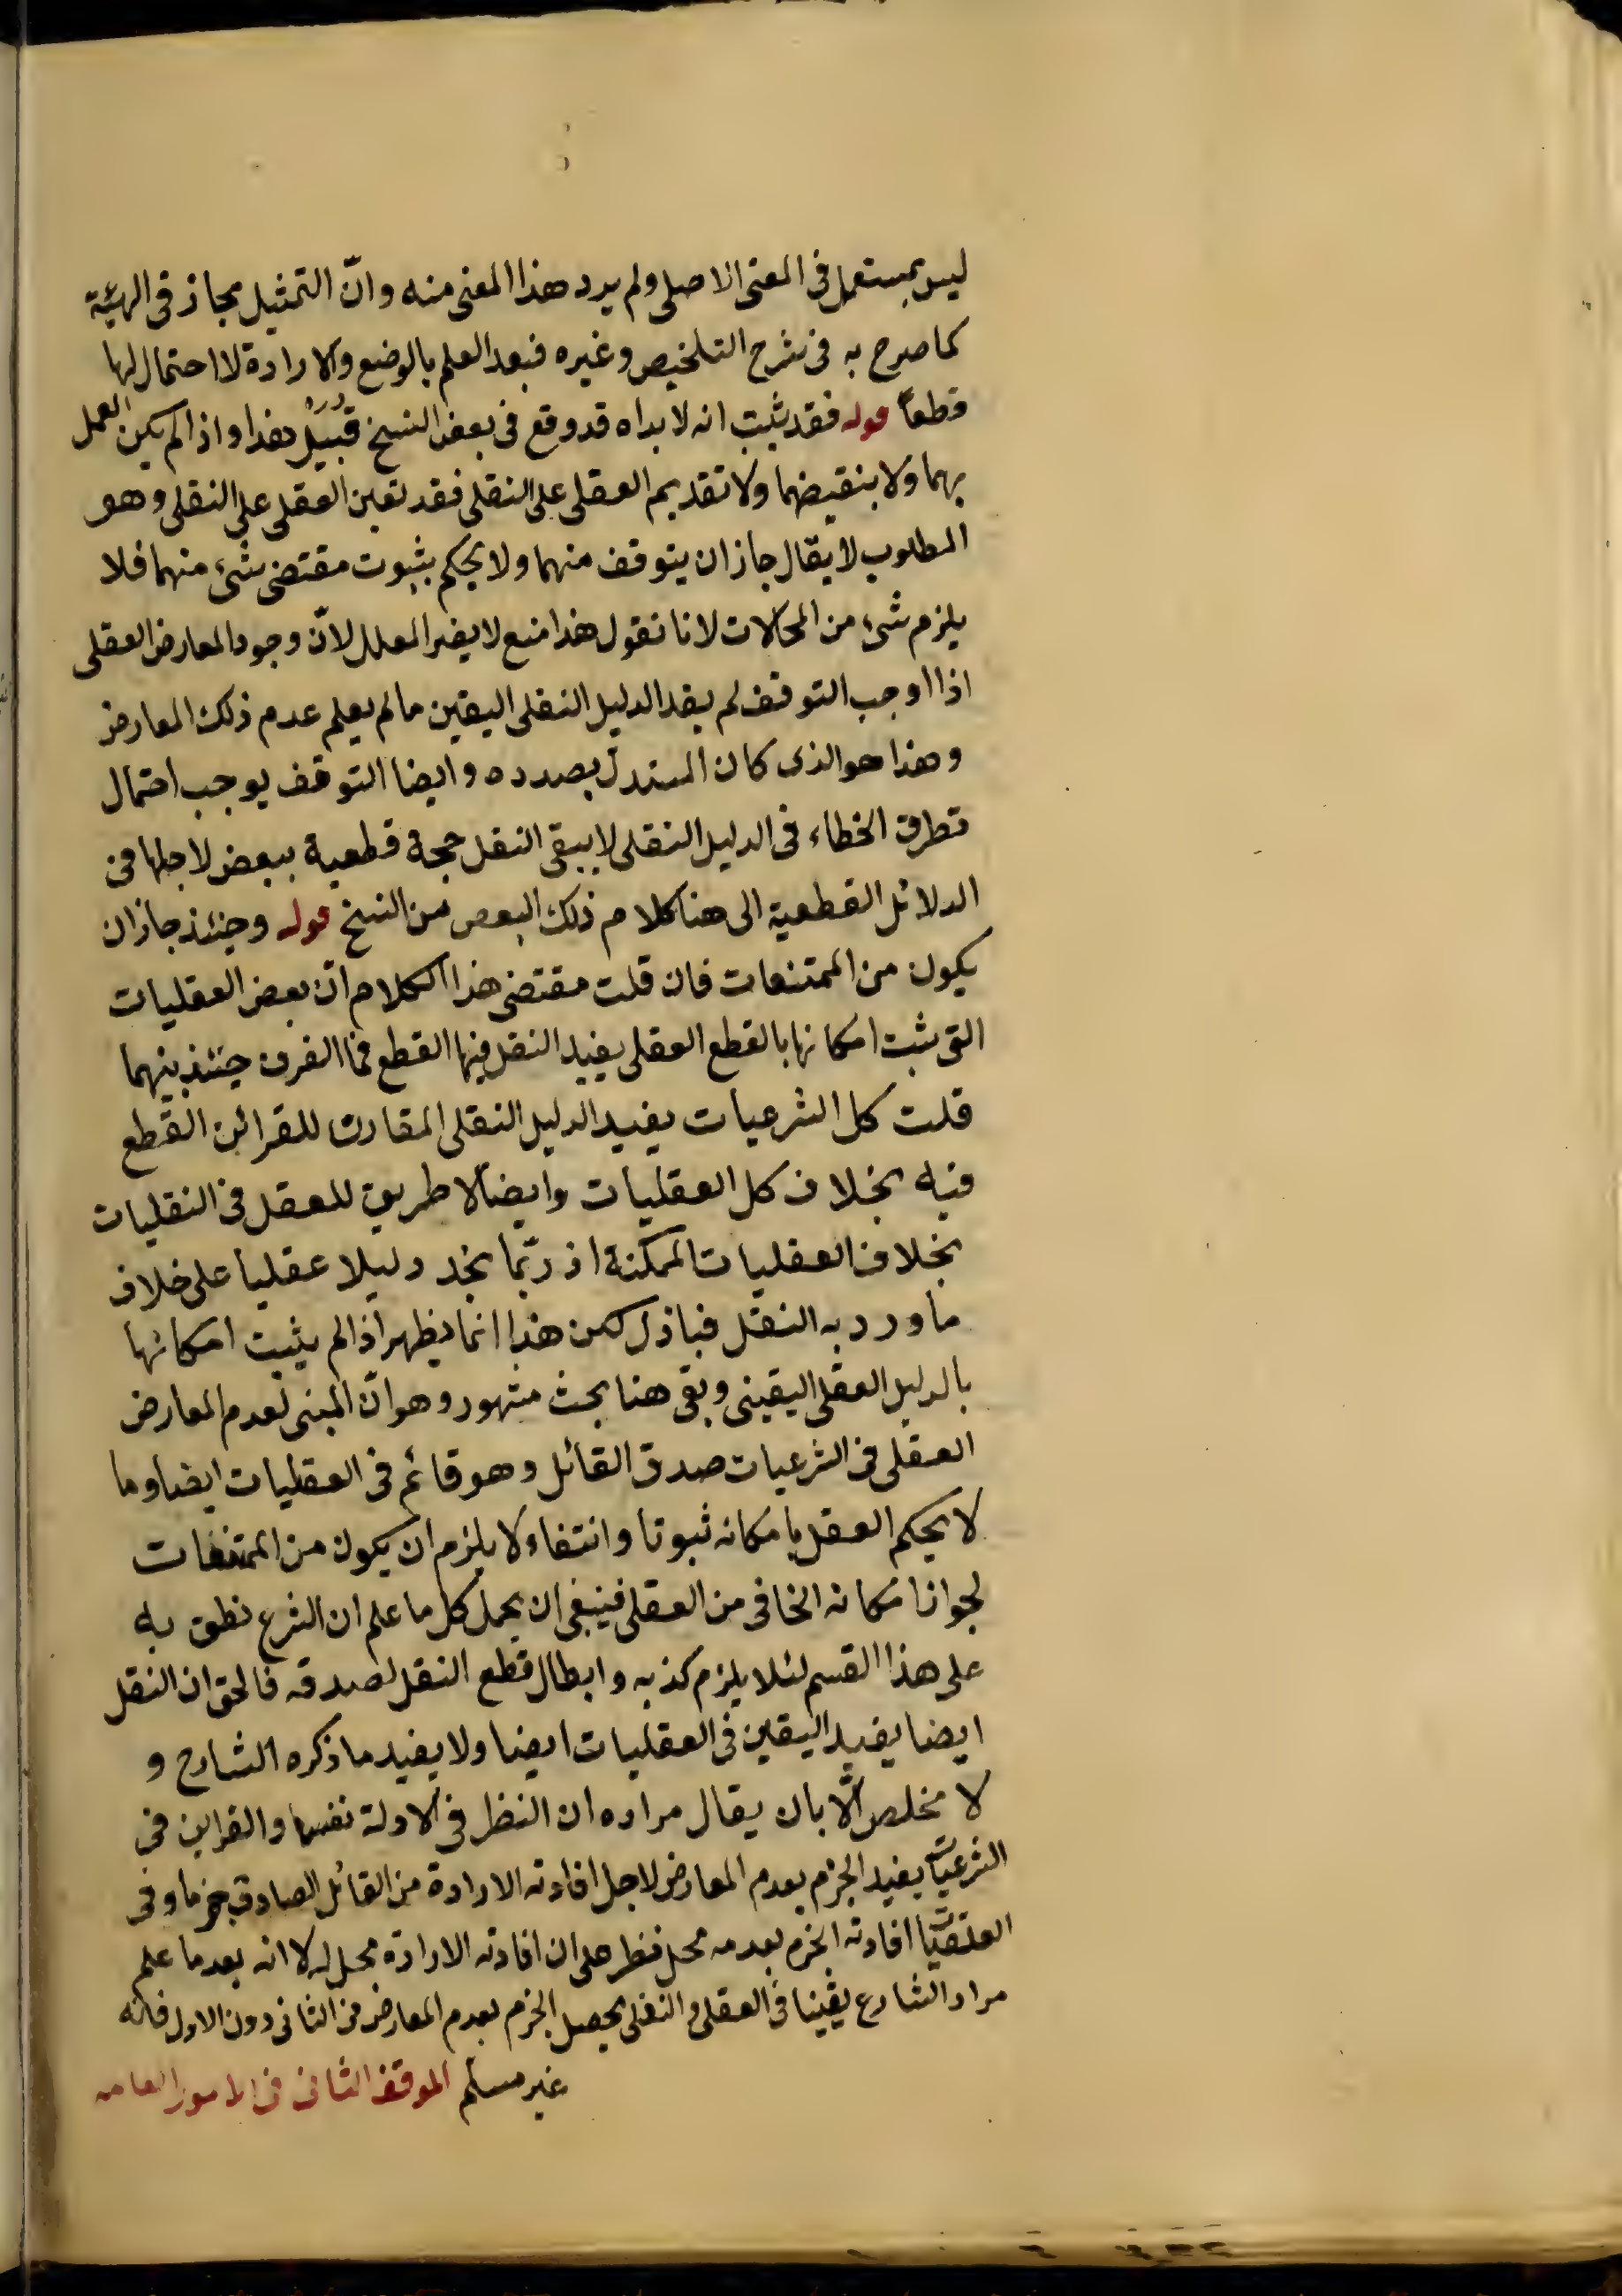 ليس بمستعمل فى المعنى الاصلى ولم يرد هذا المعنى منه وانّ التمثيل مجاز فى الهيئة
كما صرح به فى شرح التلخيص وغيره فبعد العلم بالوضع والارادة لا احتمال لها
قطعاً قوله فقد ثبت انه لا بد اه قد وقع فى بعض النسخ قُبَيْلَ هذا واذا لم يكن العمل
بهما ولا بنقيضهما ولا تقديم العقلى على النقلى فقد تعين العقلى على النقلى وهو
المطلوب لا يقال جاز ان يتوقف منهما ولا يحكم بثبوت مقتضى شئ منهما فلا
يلزم شئ من المحالات لانا نقول هذا منع لا يضر المعلل لانّ وجود المعارض العقلى
اذا اوجب التوقف لم يفد الدليل النقلى اليقين ما لم يعلم عدم ذلك المعارض
وهذا هو الذى كان المستدل بصدده وايضا التوقف يوجب احتمال
تطرق الخطاء فى الدليل النقلى لا يبقى النقل حجة قطعية لاجلها فى
الدلائل القطعية الى هنا كلام ذلك البعض من النسخ قوله وحينئذ جاز ان
يكون من الممتنعات فان قلت مقتضى هذا الكلام انّ بعض العقليات
التى ثبت امكانها بالقطع العقلى يفيد النقل فيها القطع فما الفرق حينئذ بينهما
قلت كل الشرعيات يفيد الدليل النقلى المقارن للقرائن القطع
فيه بخلاف كل العقليات وايضا لا طريق للعقل فى النقليات
بخلاف العقليات الممكنة اذ ربّما نجد دليلا عقليا على خلاف
ما ورد به النقل لكن هذا انما يظهر اذا لم يثبت امكانها
بالدليل العقلى اليقينى وبقى هنا بحث مشهور وهو انّ المبنى لعدم المعارض
العقلى فى الشرعيات صدق القائل وهو قائم فى العقليات ايضا وما
لا يحكم العقل بامكانه ثبوتا وانتفاء لا يلزم ان يكون من الممتنعات
لجواز امكانه الخافى من العقل فينبغى ان يحمل كل ما علم ان الشرع نطق به
على هذا القسم لئلا يلزم كذبه وابطال قطع النقل لصدقه فالحق ان النقل
ايضا يفيد اليقين فى العقليات ايضا ولا يفيد ما ذكره الشارح و
لا مخلص الّا بان يقال مراده ان النظر فى الادلة نفسها والقراين فى
الشرعيّات يفيد الجزم بعدم المعارض لاجل افادته الارادة من القائل الصادق جزما وفى
العقليّات افادته الجزم بعدمه محل نظر على ان افادته الارادة محل له لا انه بعد ما علم
مراد الشارع يقينا فى العقلى والنقلى يحصل الجزم بعدم المعارض فى الثانى دون الاول فانه
غير مسلّم الموقف الثانى فى الامور العامه